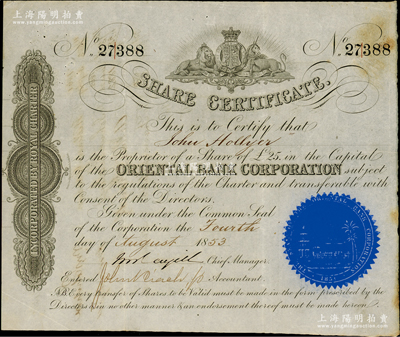 上海陽明拍賣
www.yangmingauction.com
No. 27388
No. 27388
SHARE CERTIFICATE.
This is to Certify that
John Hollyer
is the Proprietor of a Share of £25, in the Capital
of the ORIENTAL BANK CORPORATION subject
to the regulations of the Charter and transferable with
Consent of the Directors.
Given under the Common Seal
of the Corporation the Fourth
day of August 1853
Chief Manager.
Entered Accountant.
N.B. Every transfer of Shares to be Valid must be made in the form prescribed by the
Directors & in no other manner & an endorsement thereof must be made hereon.
INCORPORATED BY ROYAL CHARTER
BANK CORPORATION
1851